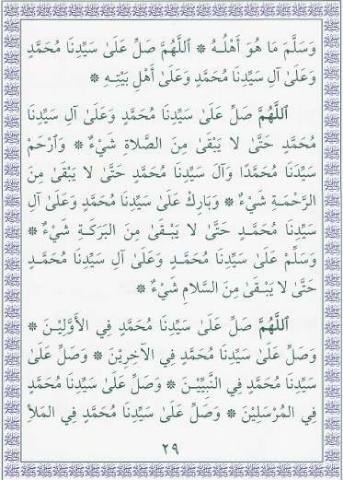 وَسَلَّمَ مَا هُوَ أَهْلُهُ ۞ ٱللَّهُمَّ صَلِّ عَلَىٰ سَيِّدِنَا مُحَمَّدٍ
وَعَلَىٰ آلِ سَيِّدِنَا مُحَمَّدٍ وَعَلَىٰ أَهْلِ بَيْتِهِ ۞
ٱللَّهُمَّ صَلِّ عَلَىٰ سَيِّدِنَا مُحَمَّدٍ وَعَلَىٰ آلِ سَيِّدِنَا
مُحَمَّدٍ حَتَّىٰ لا يَبْقَىٰ مِنَ الصَّلاةِ شَيْءٌ ۞ وَٱرْحَمْ
سَيِّدَنَا مُحَمَّدًا وَآلَ سَيِّدِنَا مُحَمَّدٍ حَتَّىٰ لا يَبْقَىٰ مِنَ
الرَّحْمَةِ شَيْءٌ ۞ وَبَارِكْ عَلَىٰ سَيِّدِنَا مُحَمَّدٍ وَعَلَىٰ آلِ
سَيِّدِنَا مُحَمَّدٍ حَتَّىٰ لا يَبْقَىٰ مِنَ البَرَكَةِ شَيْءٌ ۞
وَسَلِّمْ عَلَىٰ سَيِّدِنَا مُحَمَّدٍ وَعَلَىٰ آلِ سَيِّدِنَا مُحَمَّدٍ
حَتَّىٰ لا يَبْقَىٰ مِنَ السَّلامِ شَيْءٌ ۞
ٱللَّهُمَّ صَلِّ عَلَىٰ سَيِّدِنَا مُحَمَّدٍ فِي الأَوَّلِيْنَ ۞
وَصَلِّ عَلَىٰ سَيِّدِنَا مُحَمَّدٍ فِي الآخِرِيْنَ ۞ وَصَلِّ عَلَىٰ
سَيِّدِنَا مُحَمَّدٍ فِي النَّبِيِّيْنَ ۞ وَصَلِّ عَلَىٰ سَيِّدِنَا مُحَمَّدٍ
فِي المُرْسَلِيْنَ ۞ وَصَلِّ عَلَىٰ سَيِّدِنَا مُحَمَّدٍ فِي المَلأِ
٢٩